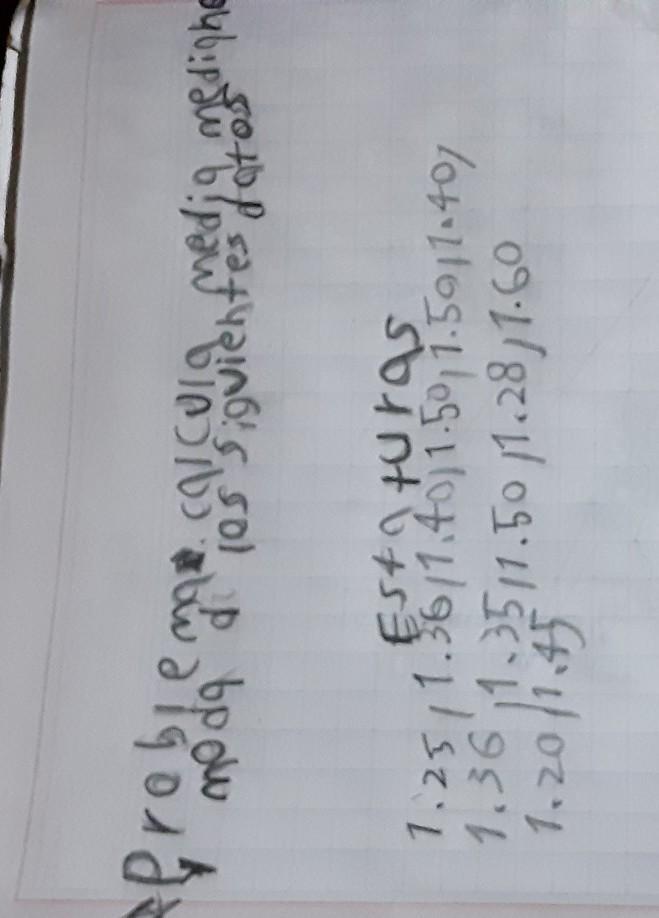 Problema. calcula media mediana
y moda d: los siguientes datos
Estaturas
1.25, 1.36, 1.40, 1.50, 1.50, 1.40,
1.36, 1.35, 1.50, 1.28, 1.60
1.20, 1.45